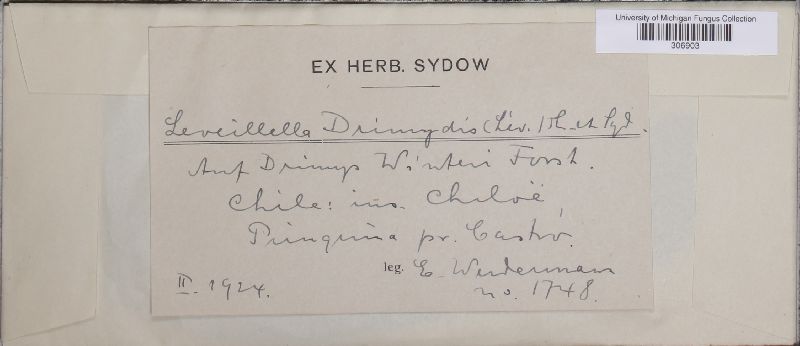 University of Michigan Fungus Collection
306903
EX HERB. SYDOW
Leveillella Drimydis (Lév.) Th. et Syd.
Auf Drimys Winteri Forst.
Chile: ins. Chiloë,
Pinquina pr. Castro.
leg. E. Werdermann
II. 1924.
no. 1748.